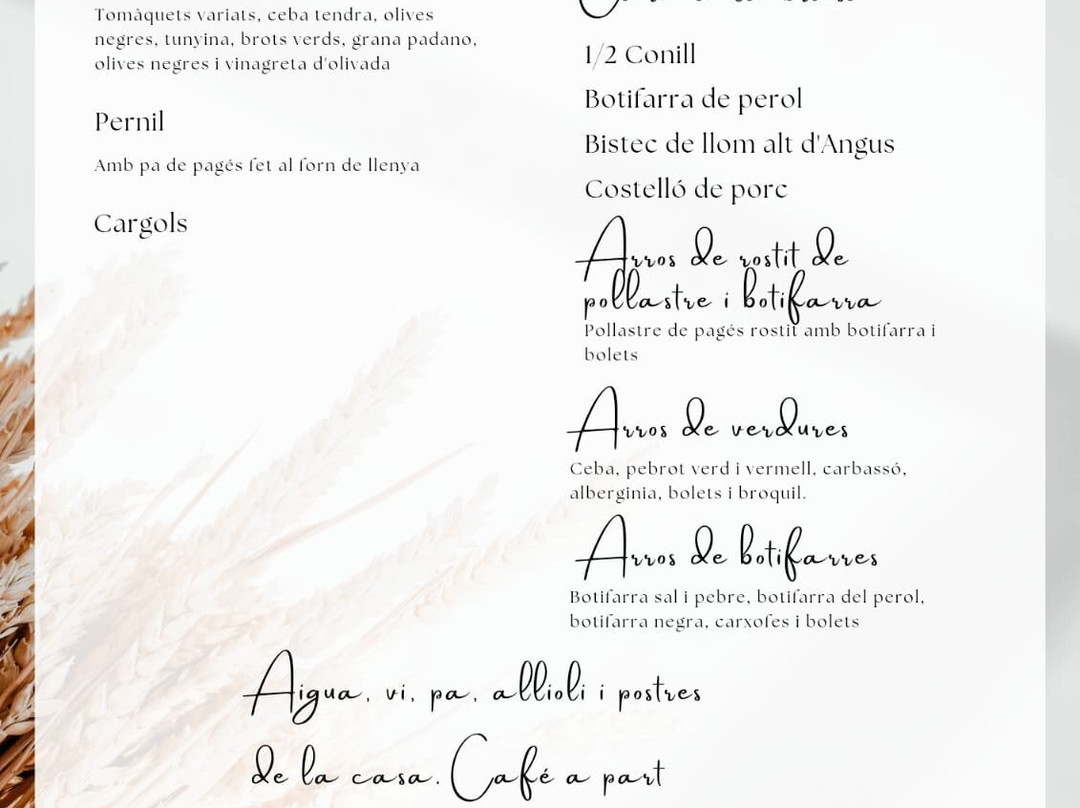 Tomàquets variats, ceba tendra, olives
negres, tunyina, brots verds, grana padano,
olives negres i vinagreta d'olivada
Pernil
Amb pa de pagés fet al forn de llenya
Cargols
1/2 Conill
Botifarra de perol
Bistec de llom alt d'Angus
Costelló de porc
Arros de rostit de
pollastre i botifarra
Pollastre de pagés rostit amb botifarra i
bolets
Arros de verdures
Ceba, pebrot verd i vermell, carbassó,
alberginia, bolets i broquil.
Arros de botifarres
Botifarra sal i pebre, botifarra del perol,
botifarra negra, carxofes i bolets
Aigua, vi, pa, allioli i postres
de la casa. Café a part